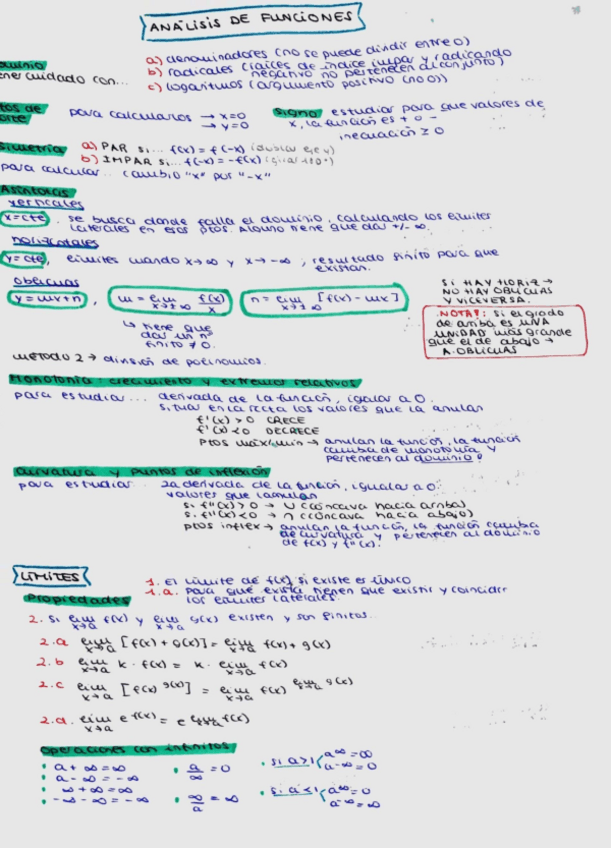 ANÁLISIS DE FUNCIONES
a) denominadores (no se puede dividir entre 0)
ominio
b) radicales (raíces de índice impar y radicando
ener cuidado con...
negativo no pertenecen al conjunto)
c) logaritmos (argumento positivo (no 0))
tos de
orte
para calcularlos → x=0
→ y=0
Signo estudiar para que valores de
x, la función es + o -
inecuación ≥ 0
Simetría a) PAR si... f(x) = f(-x)
b) IMPAR si... f(-x) = -f(x)
para calcular... cambio "x" por "-x"
Asíntotas
verticales
x=cte. se busca donde falla el dominio, calculando los límites
laterales en esos ptos. Alguno tiene que dar +/- ∞.
horizontales
y=cte, límites cuando x→∞ y x→-∞, resultado finito para que
existan.
oblicuas
y=mx+n, m = lim x→±∞ f(x)/x n = lim x→±∞ [f(x) - mx]
↳ tiene que
dar un nº
finito ≠ 0.
SI HAY HORIZ →
NO HAY OBLICUAS
Y VICEVERSA.
NOTA!: si el grado
de arriba es UNA
UNIDAD más grande
que el de abajo →
A. OBLICUAS
MÉTODO 2 → división de polinomios.
Monotonía: crecimiento y extremos relativos
para estudiar... derivada de la función, igualar a 0.
situar en la recta los valores que la anulan
f'(x) > 0 CRECE
f'(x) < 0 DECRECE
Ptos máx/min → anulan la función, la función
cambia de monotonía y
pertenecen al dominio!
Curvatura y puntos de inflexión
para estudiar 2a derivada de la función, igualar a 0
valores que la anulan
si f''(x) > 0 → ∪ (cóncava hacia arriba)
si f''(x) < 0 → ∩ (cóncava hacia abajo)
ptos inflex → anulan la función, la función cambia
de curvatura y pertenecen al dominio
de f(x) y f''(x).
LÍMITES
1. El límite de f(x), si existe es ÚNICO
1.a. Para que exista tienen que existir y coincidir
los límites laterales.
Propiedades
2. Si lim x→a f(x) y lim x→a g(x) existen y son finitos...
2.a lim x→a [f(x) + g(x)] = lim x→a f(x) + g(x)
2.b lim x→a k · f(x) = k · lim x→a f(x)
2.c lim x→a [f(x)^g(x)] = lim x→a f(x)^lim x→a g(x)
2.d. lim x→a e^f(x) = e^lim x→a f(x)
Operaciones con infinitos
• a + ∞ = ∞ • a/∞ = 0 • si a>1 { a^∞ = ∞
• a - ∞ = -∞ a^-∞ = 0
• ∞ + ∞ = ∞ • ∞/a = ∞ • si a<1 { a^∞ = 0
• -∞ - ∞ = -∞ a^-∞ = ∞